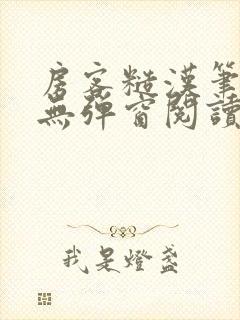 房客糙漢筆
無彈窗閱讀
我是燈盞